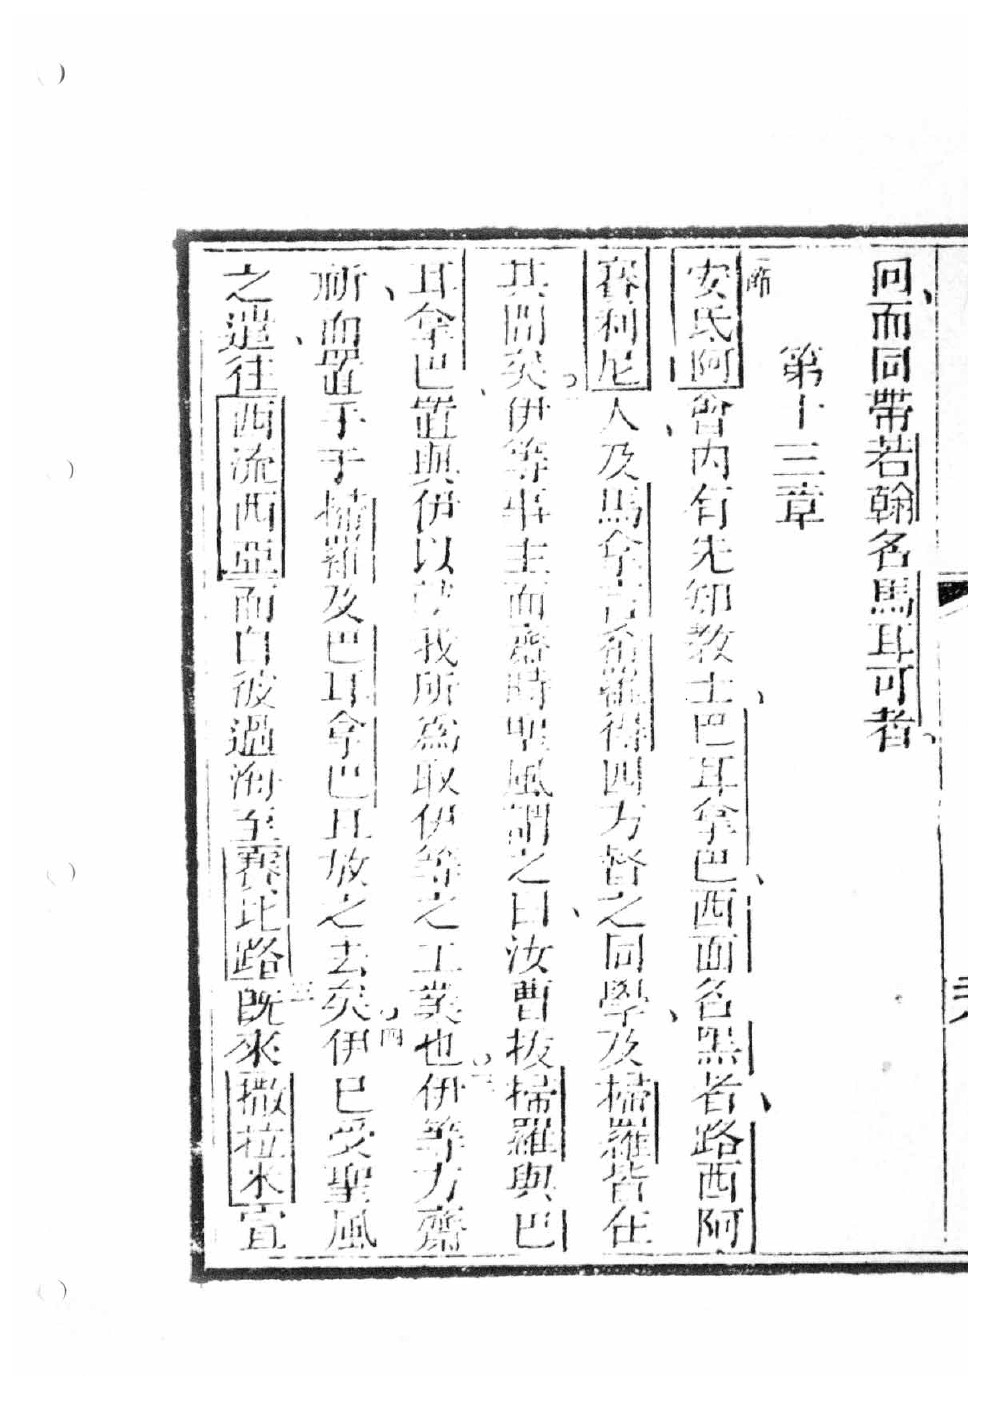 回而同帶若翰名馬耳可者
第十三章
一節
安氐阿會內有先知教士巴耳拿巴西面名黑者路西阿
賽利尼人及馬拿言希羅得四方督之同學及掃羅皆在
其間矣二伊等事主而齋時聖風謂之曰汝曹拔掃羅與巴
耳拿巴置與伊以從我所為取伊等之工業也三伊等方齋
祈而置手于掃羅及巴耳拿巴且放之去矣四伊已受聖風
之遣往西流西亞而自彼過海至賽比路五既來撒拉米宣